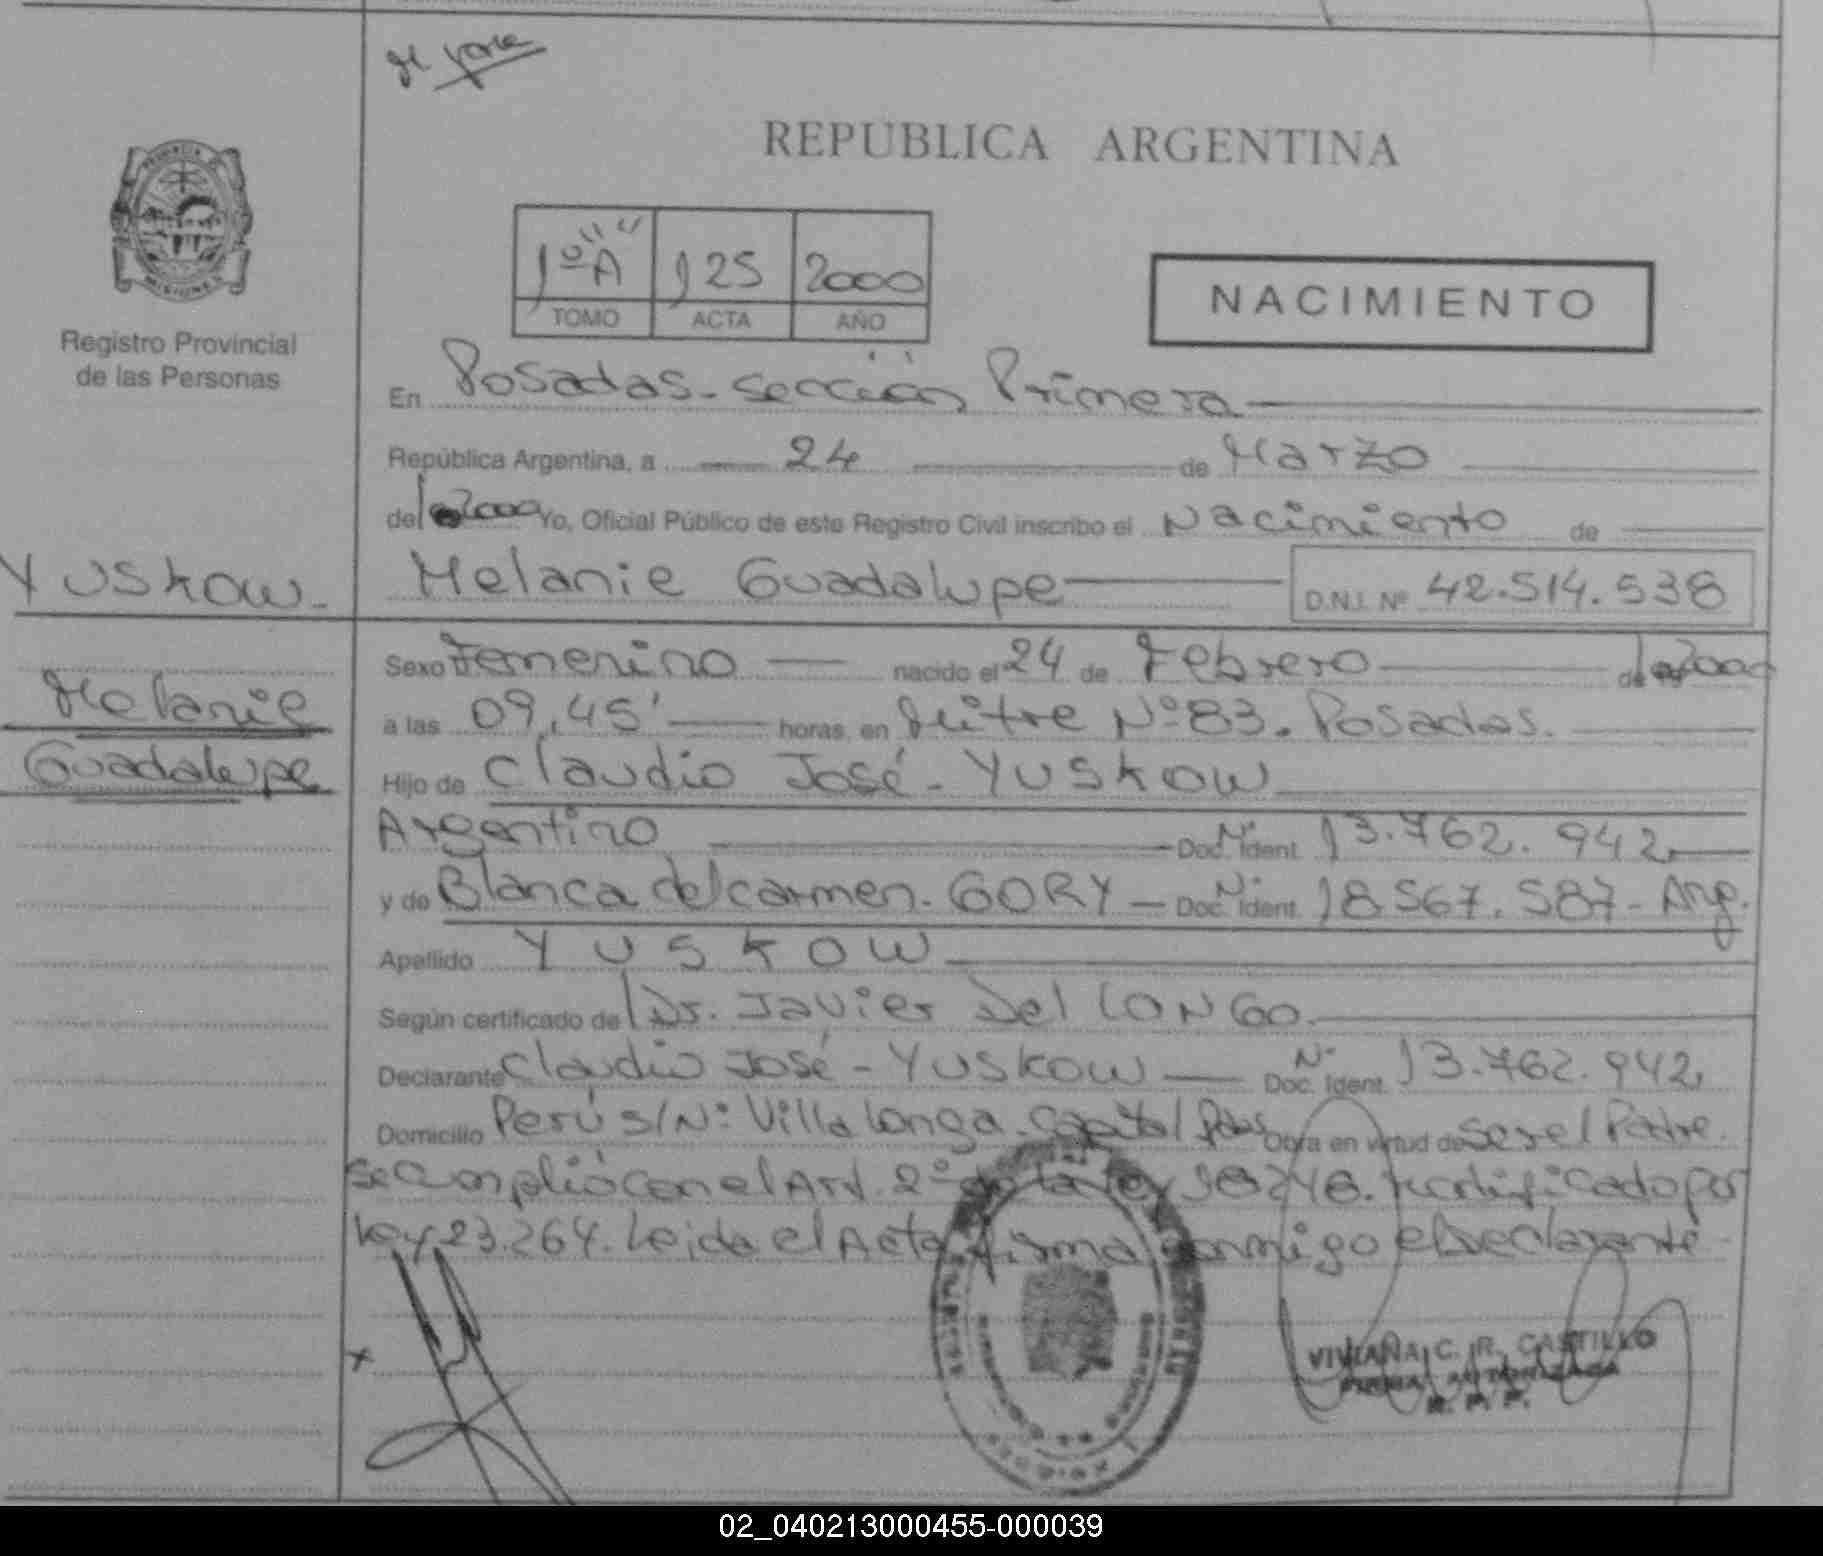 REPUBLICA ARGENTINA
PROVINCIA DE
MISIONES
Registro Provincial
de las Personas
1º "A" 125 2000
TOMO ACTA AÑO
NACIMIENTO
En Posadas - sección Primera
República Argentina, a 24 de Marzo
del 2000 Yo, Oficial Público de este Registro Civil inscribo el Nacimiento de
YUSKOW.
Melanie Guadalupe D.N.I. Nº 42.514.538
Melanie
Guadalupe
Sexo Femenino nacido el 24 de Febrero de 2000
a las 09,45' horas, en Mitre Nº 83. Posadas.
Hijo de Claudio José - YUSKOW
Argentino Nº Doc. Ident. 13.762.942
y de Blanca del carmen. GORY Nº Doc. Ident. 18.567.587 - Arg.
Apellido YUSKOW
Según certificado del Dr. Javier Del LONGO.
Declarante Claudio José - YUSKOW Nº Doc. Ident. 13.762.942
Domicilio Perú s/Nº Villa Longa. Capital Pdas Obra en virtud de ser el Padre.
se cumplió con el Art. 2º de la ley 18248. rectificado por
ley 23.264. Leida el Acta firma conmigo el declarante -
x
VIVIANA C. R. CASTILLO
FIRMA AUTORIZADA
R. P. P.
02_040213000455-000039